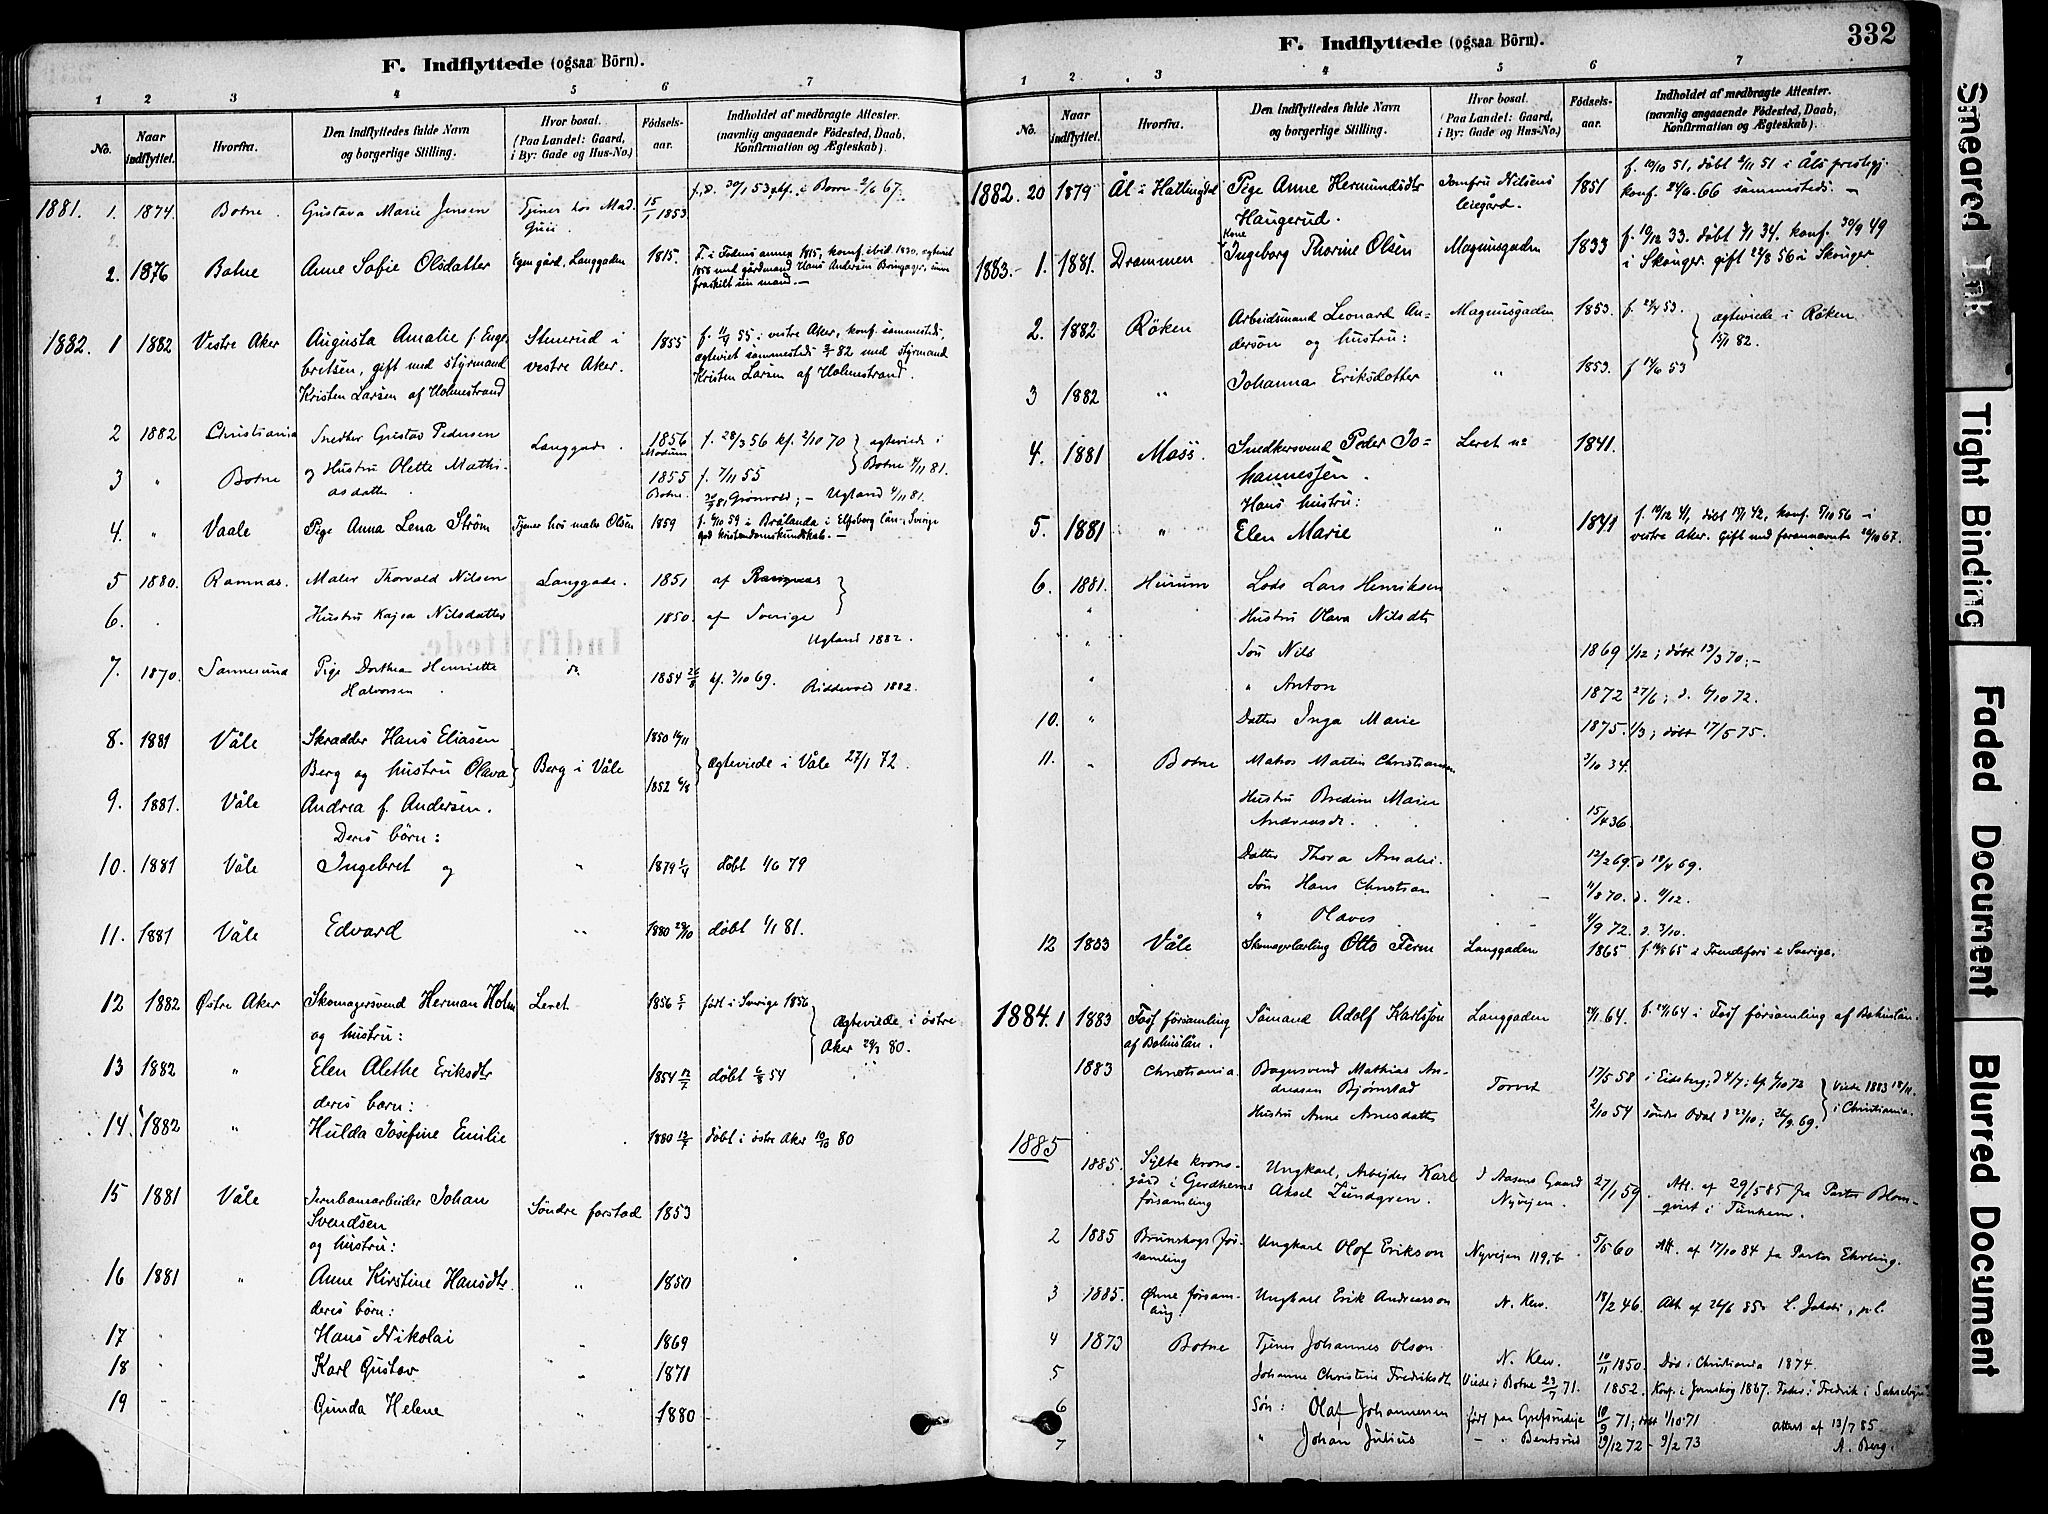 F. Indflyttede (ogsaa Börn).
1 2 3 4 5 6 7
No. Naar indflyttet. Hvorfra. Den Indflyttedes fulde Navn og borgerlige Stilling. Hvor bosat. (Paa Landet: Gaard, i By: Gade og Hus-No.) Födsels-aar. Indholdet af medbragte Attester. (navnlig angaaende Födested, Daab, Konfirmation og Ægteskab).
1881. 1. 1874. Botne. Gustava Marie Jensen Tjener hos Mad. 15/1 1853
2. 1876 Botne Anne Sofie Olsdatter Egen gård, Langgaden 1815.
1882. 1 1882 Vestre Aker Augusta Amalie f. Enge- Stenerud i 1855 f. 11/4 55 i vestre Aker, konf. sammesteds,
britsen, gift med styrmand vestre Aker. ægteviet sammesteds 82 med styrmand
Kristen Larsen af Holmestrand Kristen Larsen af Holmestrand.
2 1882 Christiania Snedker Gustav Pedersen Langgade. 1856 Modum f. 28/3 56 kf. 2/10 70 ægteviede i
3 " Botne og Hustru Olette Mathi- 1855 Botne. f. 7/11 55 Botne 4/11 81.
asdatter Ugland 4/11 81.
4. " Vaale Pige Anna Lena Ström Tjener hos maler Olsen 1859 f. 6/10 59 i Brålanda i Elfsborg län i Sverige
god kristendomskundskab. —
5 1880. Ramnæs. Maler Thorvald Nilsen Langgade. 1851 af Ramnæs
6. Hustru Kajsa Nilsdatter 1850. af Sverige
Ugland 1882.
7. 1870. Sannesund Pige Dorthea Henriette do. 1854 26/8 kf. 3/10 69. Riddervold 1882.
Halvorsen
8. 1881 Våle Skrædder Hans Eliasen 1850 14/11
Berg og hustru Olava Berg i Våle ægteviede i Våle 27/1 72.
9. 1881. Våle Andrea f. Andersen. 1852 6/8
Deres börn:
10. 1881 Våle Ingebret og " 1879 1/4 döbt 1/6 79
11. 1881 Våle Edvard " 1880 28/10 döbt 1/1 81.
12 1882 Östre Aker Skomagersvend Herman Holm Leret 1856 5/1 födt i Sverige 1856
og hustru: Ægteviede i östre
Aker 80.
13 1882 " Elen Alethe Eriksdtr 1854 12/7 döbt 6/8 54
deres börn:
14. 1882 " Hulda Josefine Emilie 1880 12/7 döbt i östre Aker 10/10 80
15 1881 Våle Jernbanearbeider Johan Söndre forstad 1853
Svendsen
og hustru:
16 1881 " Anne Kirstine Hansdtr. " 1850
deres börn:
17 Hans Nikolai " 1869
18 Karl Gustav " 1871
19 Gunda Helene " 1880
F. Indflyttede (ogsaa Börn). 332
1 2 3 4 5 6 7
No. Naar indflyttet. Hvorfra. Den Indflyttedes fulde Navn og borgerlige Stilling. Hvor bosat. (Paa Landet: Gaard, i By: Gade og Hus-No.) Födsels-aar. Indholdet af medbragte Attester. (navnlig angaaende Födested, Daab, Konfirmation og Ægteskab).
1882. 20 1879 Ål i Hallingdal Pige Anne Hermundsdtr Jomfru Nilsens 1851 f. 10/10 51, döbt 2/11 51 i Åls prestegj.
Haugerud. leiegård. konf. 24/6 66 sammesteds. —
1883. 1. 1881. Drammen Kone Ingeborg Thorine Olsen Magnusgaden 1833 f. 19/12 33. döbt 34. konf. 30/9 49
i Skouger. gift 22/8 56 i Skouger.
2. 1882 Röken Arbeidsmand Leonard An- Magnusgaden 1853. ægteviede i Röken
dersen og hustru: 15/1 82.
3 1882 " Johanna Eriksdatter " 1853. f 14/6 53
4. 1881 Moss. Snedkersvend Peder Jo- Leret 1841.
hannessen.
Hans hustru:
5. 1881 " Elen Marie " 1841 f. 19/12 41, döbt 42, konf. 5/10 56 i
vestre Aker. Gift med forannævnte 20/10 67.
6. 1881. Hurum Lods Lars Henriksen
" Hustru Olava Nilsdtr
" Sön Nils 1869 1/12; döbt 13/3 70; —
" " Anton 1872 27/6; d. 6/10 72.
10. " Datter Inga Marie 1875. 1/3; döbt 17/5 75.
11. " Botne Matros Martin Christiansen 3/10 34.
Hustru Bredine Marie
Andreasdt. 15/4 36.
Datter Thora Amalie. 12/2 69. d 18/4 69.
Sön Hans Christian 11/8 70. d. 4/12.
" Olaves 4/9 72. d. 3/10.
12 1883 Våle Skomagerlærling Otto Ferm Langgaden 1865 65 i Frendefors i Sverige.
1884. 1 1883 Foss forsamling Sömand Adolf Karlsson Langgaden 24/1 64. f. 24/1 64 i Foss forsamling af Bohuslän.
af Bohuslän.
1883 Christiania. Bagersvend Mathias An- Torvet 17/5 58 i Eidsberg; d 4/7; kf. 6/10 72 Viede 1883 18/11
dreasen Björnstad i Christiania.
Hustru Anne Arnesdatter 2/10 54 söndre Odal d 22/10; 26/9 69.
1885
1885. Sylte krons- Ungkarl, Arbejder Karl I Aasens Gaard 27/1 59. Att. af 29/5 85 fra Pastor Blom-
gård i Gerdhems Aksel Lundgren. Nyvejen. qvist i Tunhem.
församling
2 1885 Brunskogs för- Ungkarl Olof Erikson Nyvejen 119, b 5/5 60 Att. af 17/10 84 fra Pastor Ehrling.
samling
3 1885. Önne försam- Ungkarl Erik Andreasson 18/2 46. Att. af 26/6 85
4 1873 Botne Tjener Johannes Olson. 10/11 1850. Död i Christiania 1874.
5 Johanne Christine Fredriksdt Viede i Botne 71. 1852. Konf. i Jernskog 1867. Fader: Fredrik i
6 Sön: Olaf Johannessen födt paa 10/9 71; döbt 1/10 71 attest af 13/7 85.
7 " Johan Julius — " — Bentsrud 19/12 72 — 9/2 73 A. Berg.
Smeared Ink
Tight Binding
Faded Document
Blurred Document